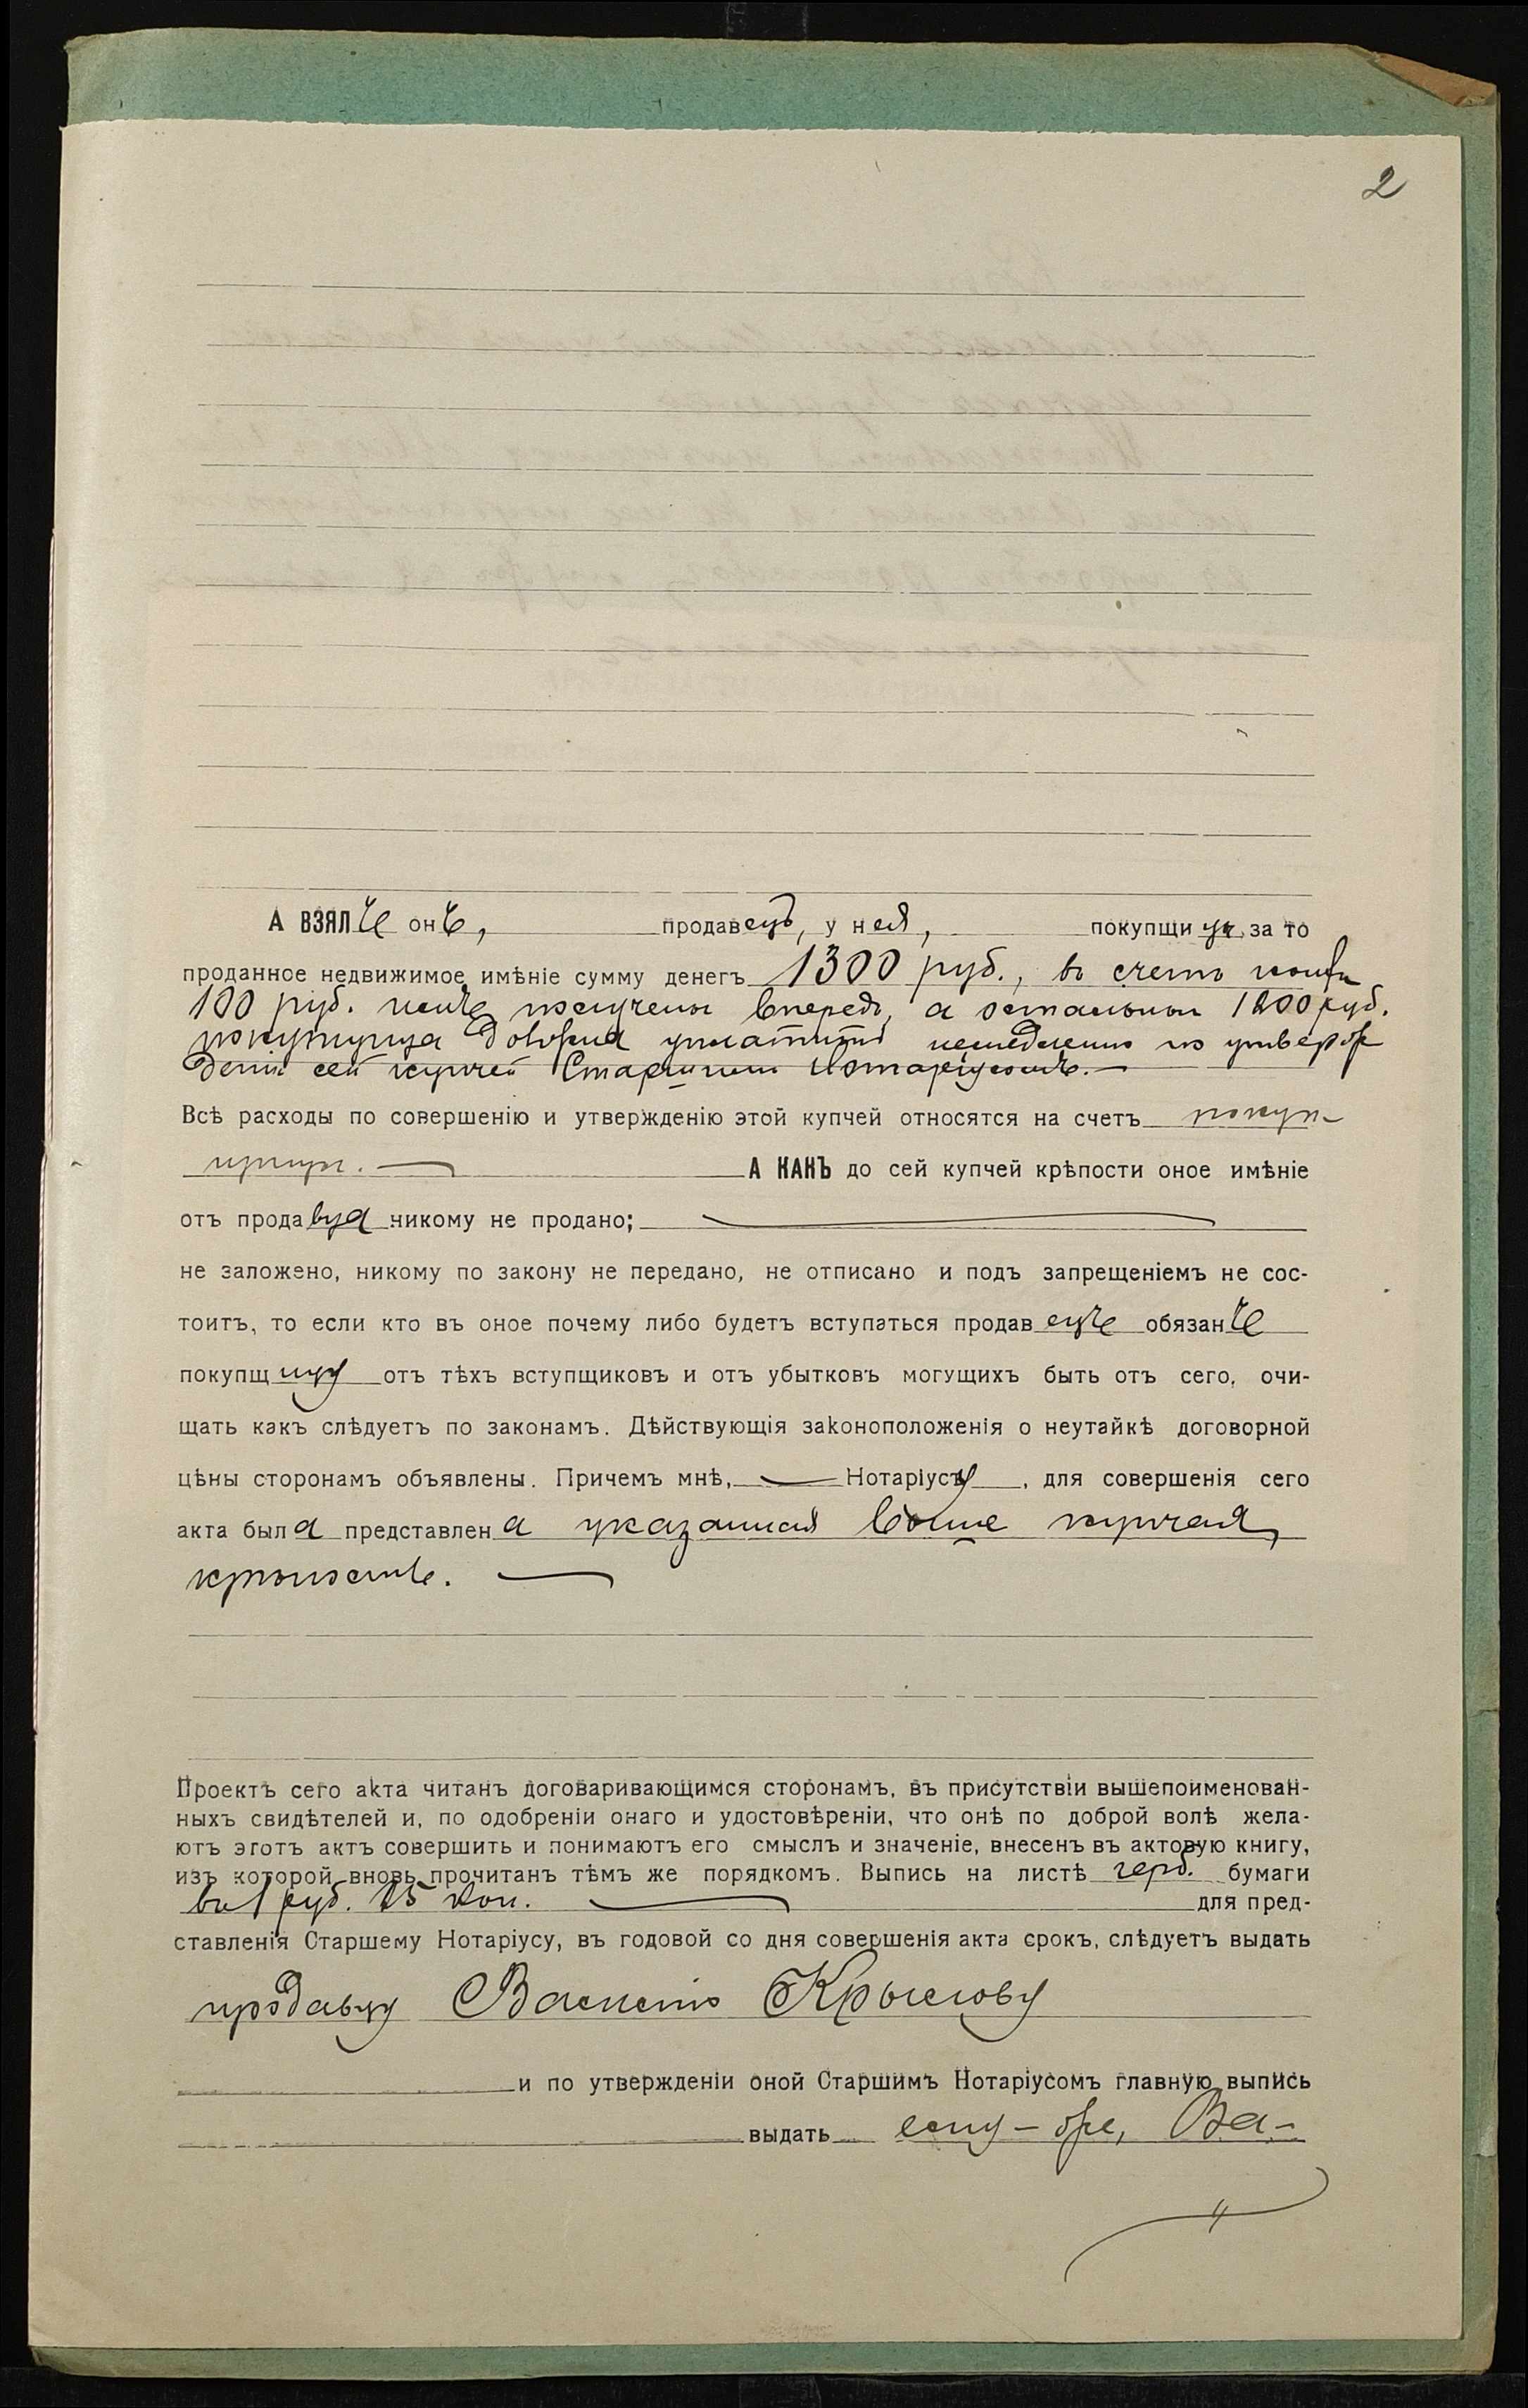 2
А ВЗЯЛъ онъ, продавецъ, у нея, покупщицы за то
проданное недвижимое имѣніе сумму денегъ 1300 руб., въ счетъ коихъ
100 руб. имъ получены впередъ, а остальные 1200 руб.
покупщица должна уплатить немедленно по утверж
деніи сей купчей Старшимъ Нотаріусомъ.—
Всѣ расходы по совершенію и утвержденію этой купчей относятся на счетъ покуп-
щицы. — А КАКЪ до сей купчей крѣпости оное имѣніе
отъ продавца никому не продано; —
не заложено, никому по закону не передано, не отписано и подъ запрещеніемъ не сос-
тоитъ, то если кто въ оное почему либо будетъ вступаться продавецъ обязанъ
покупщицу отъ тѣхъ вступщиковъ и отъ убытковъ могущихъ быть отъ сего, очи-
щать какъ слѣдуетъ по законамъ. Дѣйствующія законоположенія о неутайкѣ договорной
цѣны сторонамъ объявлены. Причемъ мнѣ, — Нотаріусу, для совершенія сего
акта была представлена указанная выше купчая
крѣпость. —
Проектъ сего акта читанъ договаривающимся сторонамъ, въ присутствіи вышепоименован-
ныхъ свидѣтелей и, по одобреніи онаго и удостовѣреніи, что онѣ по доброй волѣ жела-
ютъ этотъ актъ совершить и понимаютъ его смыслъ и значеніе, внесенъ въ актовую книгу,
изъ которой вновь прочитанъ тѣмъ же порядкомъ. Выпись на листѣ герб. бумаги
въ 1 руб. 25 коп. — для пред-
ставленія Старшему Нотаріусу, въ годовой со дня совершенія акта срокъ, слѣдуетъ выдать
продавцу Василію Крылову
и по утвержденіи оной Старшимъ Нотаріусомъ главную выпись
выдать ему-же, Ва-